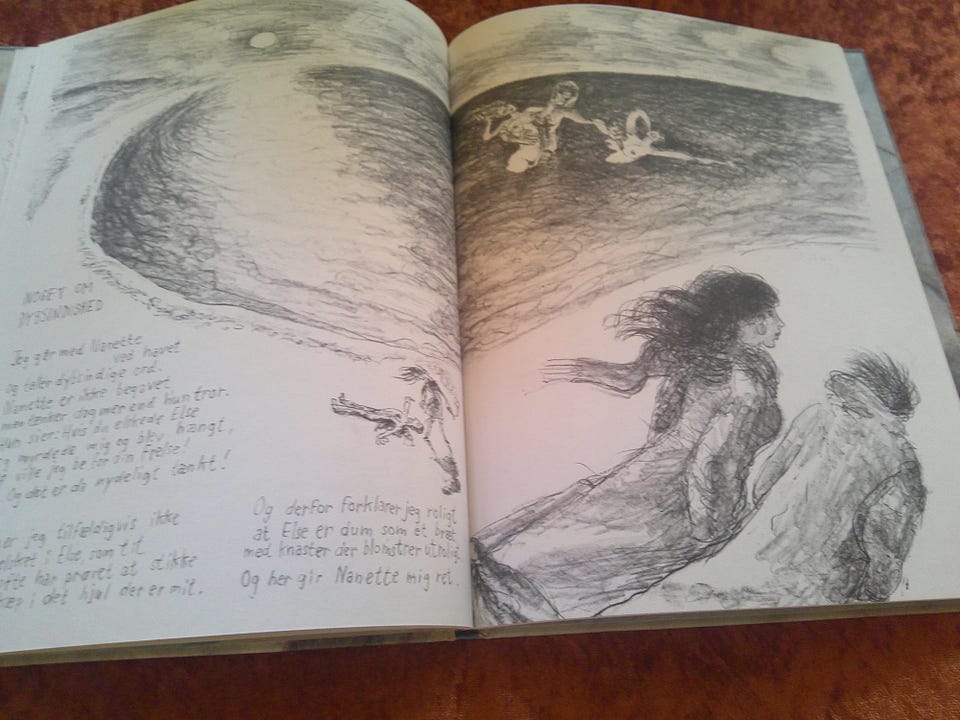 NOGET OM
DYBSINDIGHED
Jeg går med Nanette
ved havet
og taler dybsindige ord.
Nanette er ikke begavet
man tænker dog mer end hun tror.
Hun siger: Hvis du elskede Else
og myrdede mig og blev hængt,
så ville jeg be for din frelse!
Og det er da nydeligt tænkt!
er jeg tilfældigvis ikke
elsket i Else, som tit
ofte har prøvet at stikke
kæp i det hjul der er mit.
Og derfor forklarer jeg roligt
at Else er dum som et bræt
med knaster der blomstrer utroligt
Og her gir Nanette mig ret.